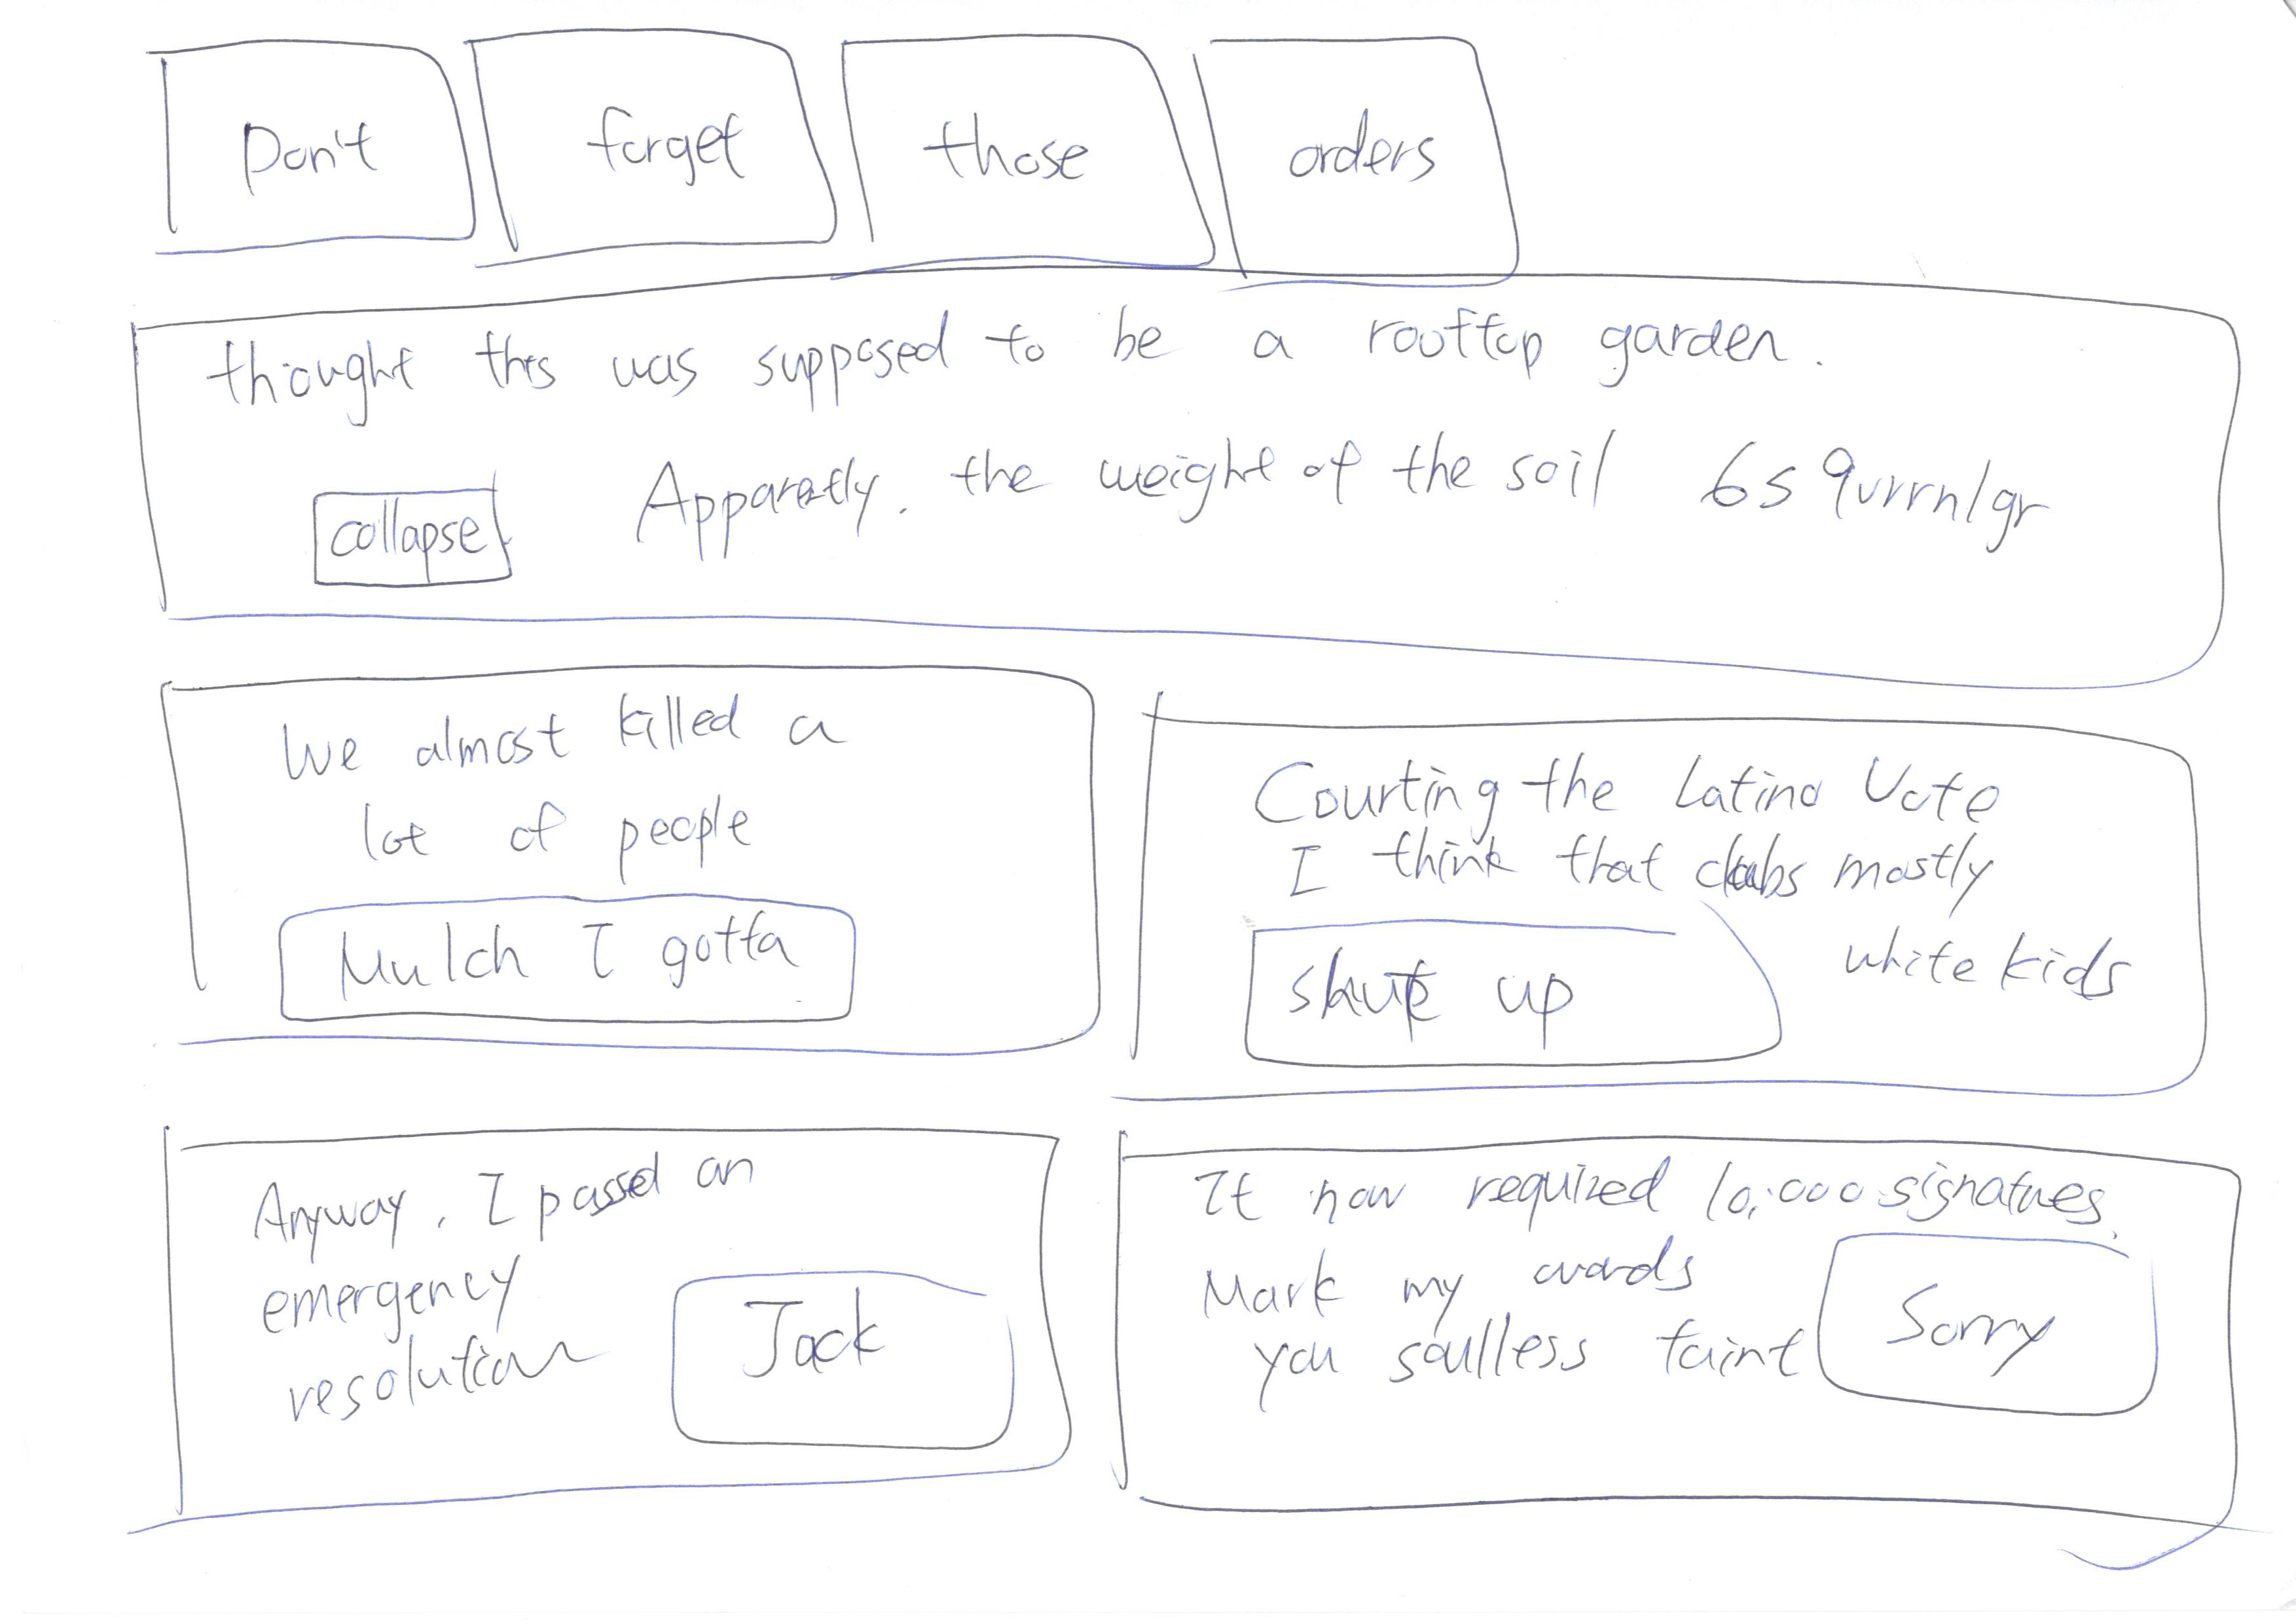 Don't forget those orders
thought this was supposed to be a rooftop garden.
collapse Apparetly, the weight of the soil
We almost killed a
lot of people
Mulch I gotta
Courting the Latino Vote
I think that mostly
white kids
shut up
Anyway, I passed an
emergency
resolution
Jack
It now required 10,000 signatues.
Mark my words
you soulless taint
Sorry